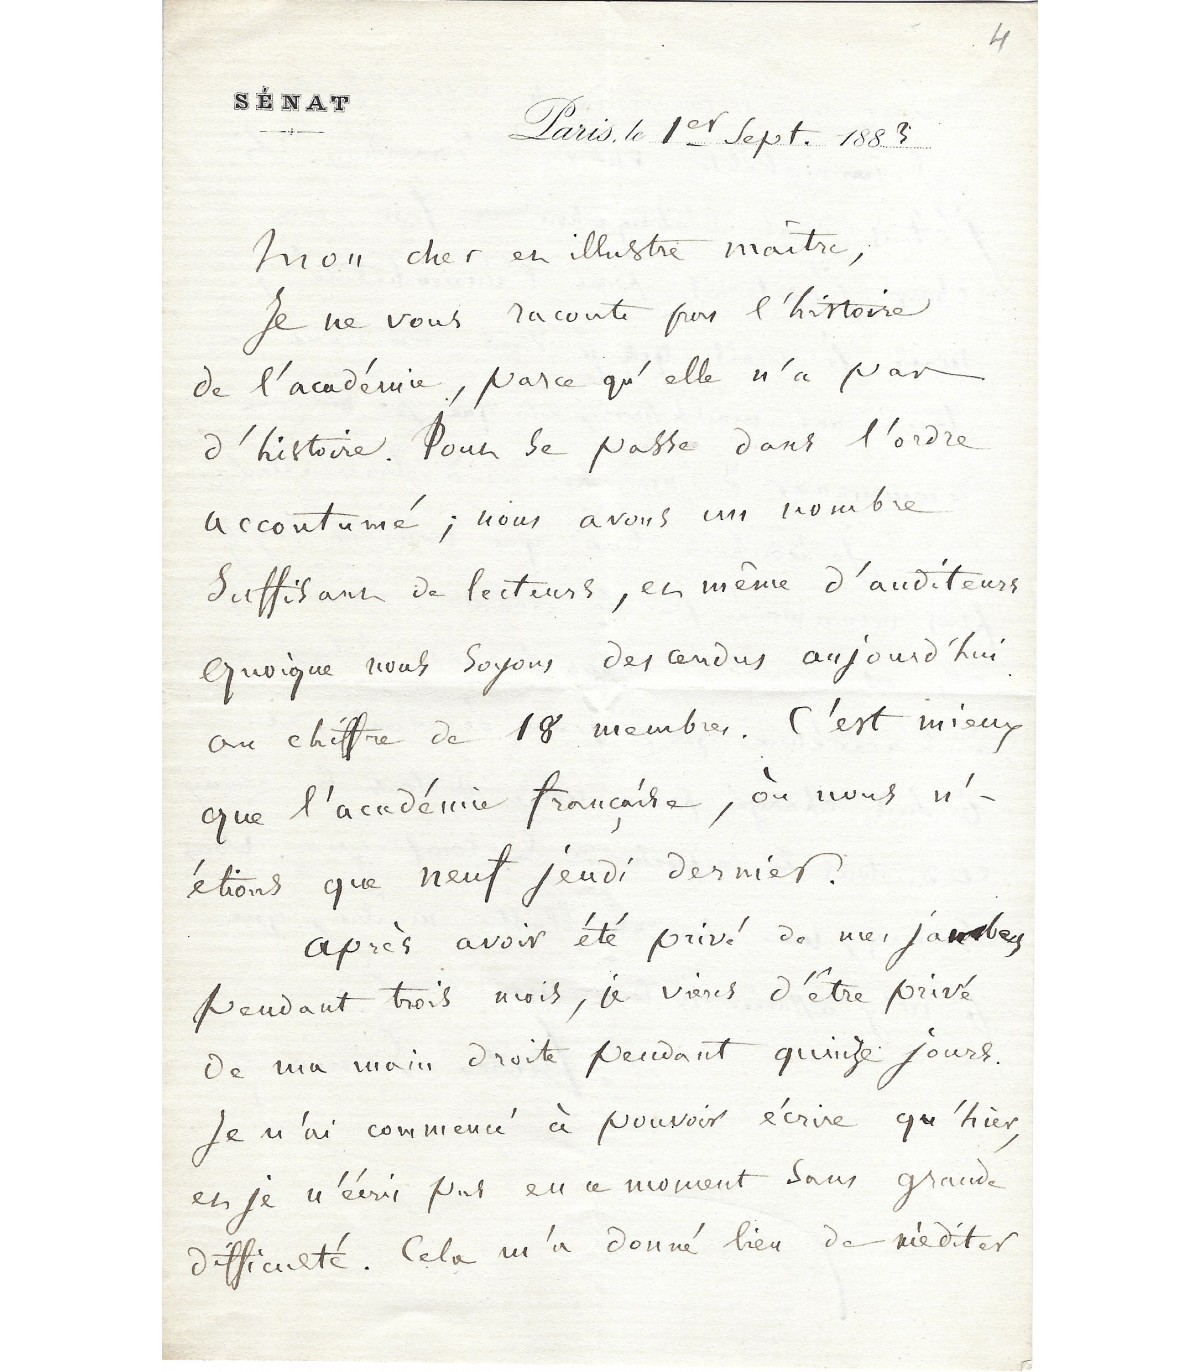 4
SÉNAT
Paris, le 1er Sept. 1883
Mon cher et illustre maître,
Je ne vous raconte pas l'histoire
de l'académie, parce qu'elle n'a pas
d'histoire. Tout se passe dans l'ordre
accoutumé ; nous avons un nombre
suffisant de lecteurs, et même d'auditeurs
quoique nous soyons descendus aujourd'hui
au chiffre de 18 membres. C'est mieux
que l'académie française, où nous n'-
étions que neuf jeudi dernier.
Après avoir été privé de mes jambes
pendant trois mois, je viens d'être privé
de ma main droite pendant quinze jours.
Je n'ai commencé à pouvoir écrire qu'hier,
et je n'écris pas en ce moment sans grande
difficulté. Cela m'a donné lieu de méditer